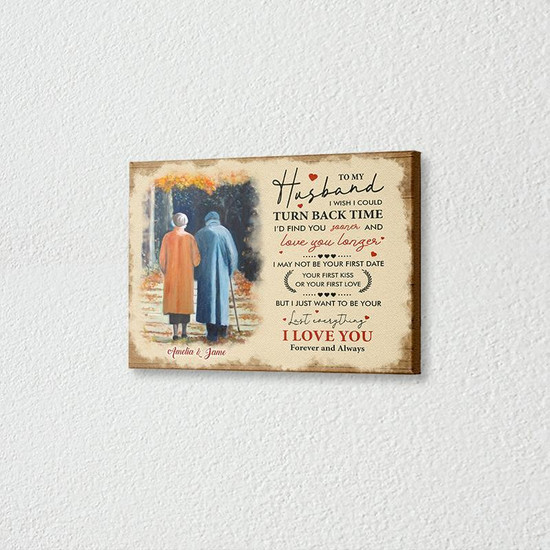 TO MY
Husband
I WISH I COULD
TURN BACK TIME
I'D FIND YOU sooner AND
love you longer
I MAY NOT BE YOUR FIRST DATE
YOUR FIRST KISS
OR YOUR FIRST LOVE
BUT I JUST WANT TO BE YOUR
Last everything
I LOVE YOU
Forever and Always
Amelia & Jame